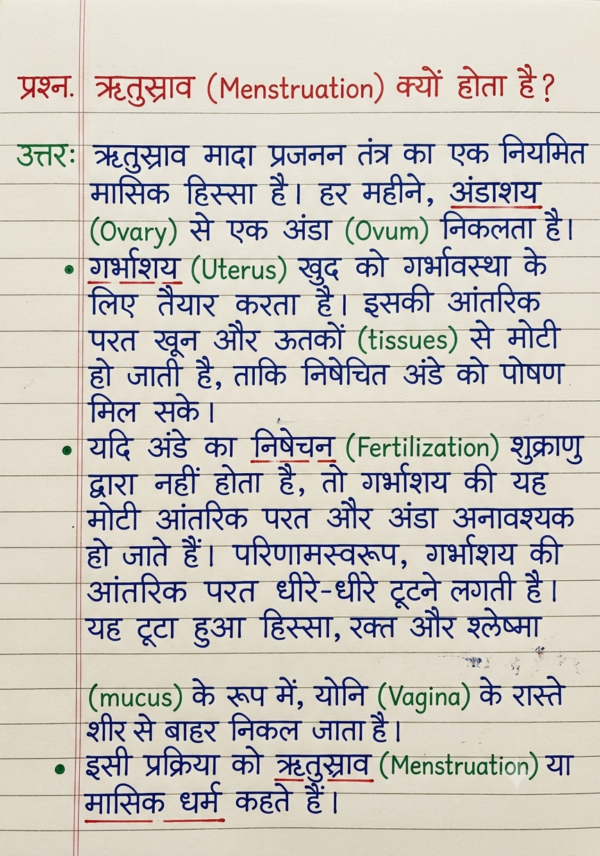 प्रश्न. ऋतुस्राव (Menstruation) क्यों होता है?
उत्तरः ऋतुस्राव मादा प्रजनन तंत्र का एक नियमित
मासिक हिस्सा है। हर महीने, अंडाशय
(Ovary) से एक अंडा (Ovum) निकलता है।
• गर्भाशय (Uterus) खुद को गर्भावस्था के
लिए तैयार करता है। इसकी आंतरिक
परत खून और ऊतकों (tissues) से मोटी
हो जाती है, ताकि निषेचित अंडे को पोषण
मिल सके।
• यदि अंडे का निषेचन (Fertilization) शुक्राणु
द्वारा नहीं होता है, तो गर्भाशय की यह
मोटी आंतरिक परत और अंडा अनावश्यक
हो जाते हैं। परिणामस्वरूप, गर्भाशय की
आंतरिक परत धीरे-धीरे टूटने लगती है।
यह टूटा हुआ हिस्सा, रक्त और श्लेष्मा
(mucus) के रूप में, योनि (Vagina) के रास्ते
शीर से बाहर निकल जाता है।
• इसी प्रक्रिया को ऋतुस्राव (Menstruation) या
मासिक धर्म कहते हैं।